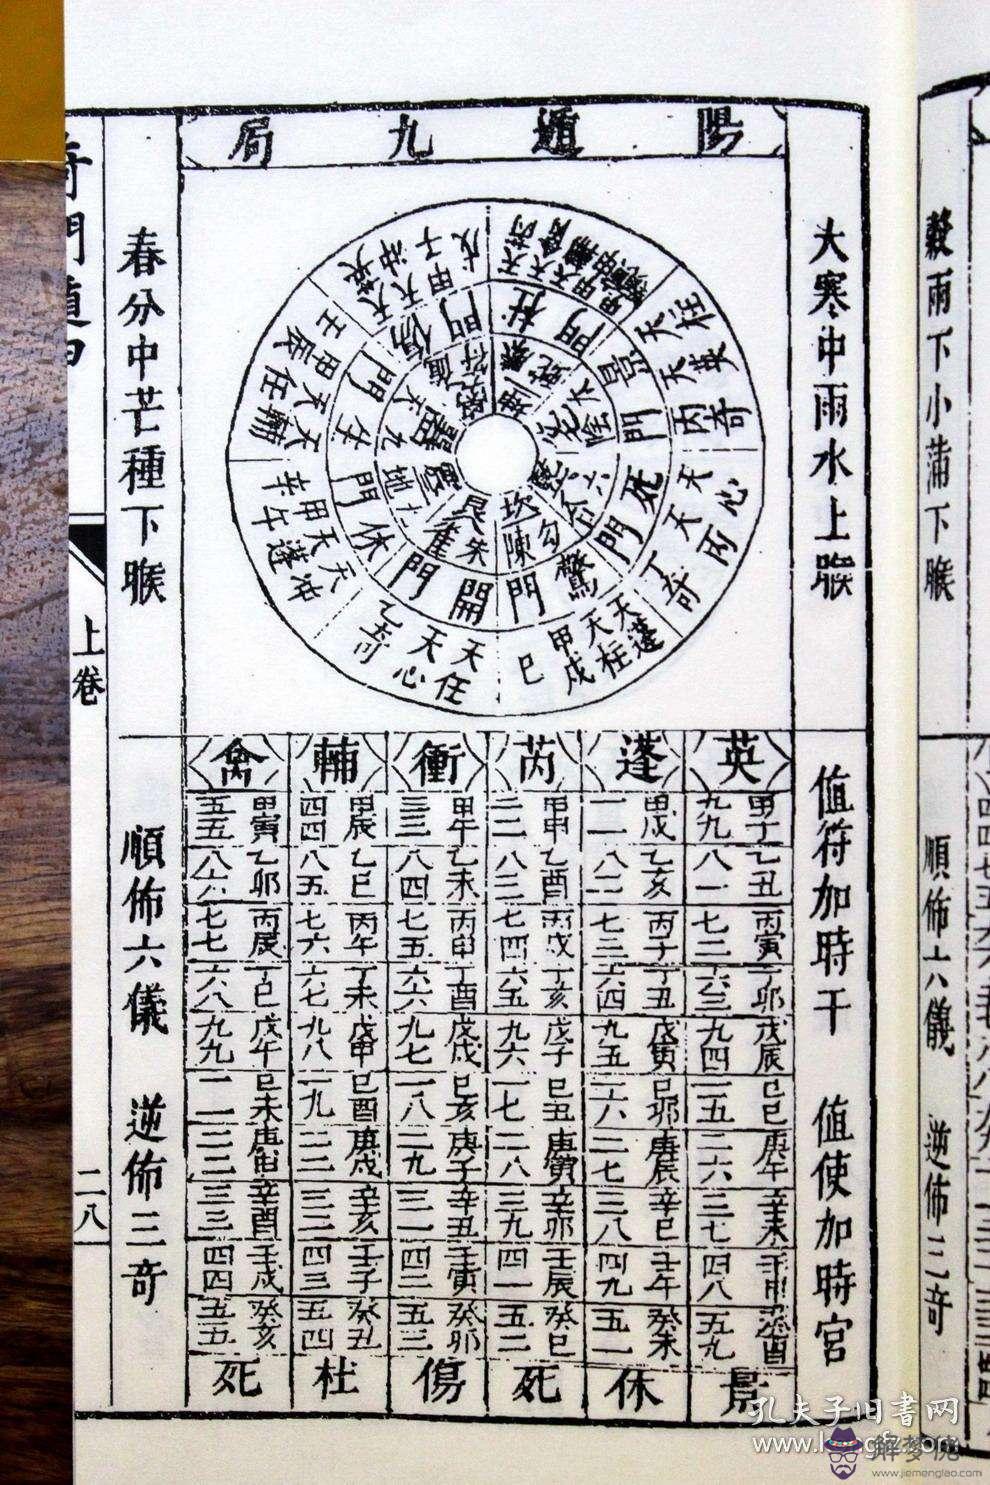 陽遁九局
大寒中雨水上𠋫
春分中芒種下𠋫
值符加時干 值使加時宮
順佈六儀 逆佈三奇
穀雨下小滿下
順佈六儀 逆佈三奇
上卷
二八
英 蓬 芮 衝 輔 禽
甲子 九九 甲戌 一一 甲申 二二 甲午 三三 甲辰 四四 甲寅 五五
乙丑 八一 乙亥 八二 乙酉 八三 乙未 八四 乙巳 八五 乙卯 八六
丙寅 七二 丙子 七三 丙戌 七四 丙申 七五 丙午 七六 丙辰 七七
丁卯 六三 丁丑 六四 丁亥 六五 丁酉 六六 丁未 六七 丁巳 六八
戊辰 九四 戊寅 九五 戊子 九六 戊戌 九七 戊申 九八 戊午 九九
己巳 一五 己卯 一六 己丑 一七 己亥 一八 己酉 一九 己未 一一
庚午 二六 庚辰 二七 庚寅 二八 庚子 二九 庚戌 二一 庚申 二二
辛未 三七 辛巳 三八 辛卯 三九 辛丑 三一 辛亥 三二 辛酉 三三
壬申 四八 壬午 四九 壬辰 四一 壬寅 四二 壬子 四三 壬戌 四四
癸酉 五九 癸未 五一 癸巳 五二 癸卯 五三 癸丑 五四 癸亥 五五
景 休 死 傷 杜 死
戊 甲子 天沖 天英
天柱 天英 丙奇
天心 天丙 丁奇
天蓬 天柱 甲戌 己
天任 天心 乙奇
天沖 天蓬 甲午 辛
天輔 天任 甲辰 壬
杜門
景門
死門
驚門
開門
休門
生門
傷門
太陰
六合
勾陳
朱雀
九地
九天
值符
坎
艮
孔夫子旧书网
解梦佬
www.jiemenglao.com